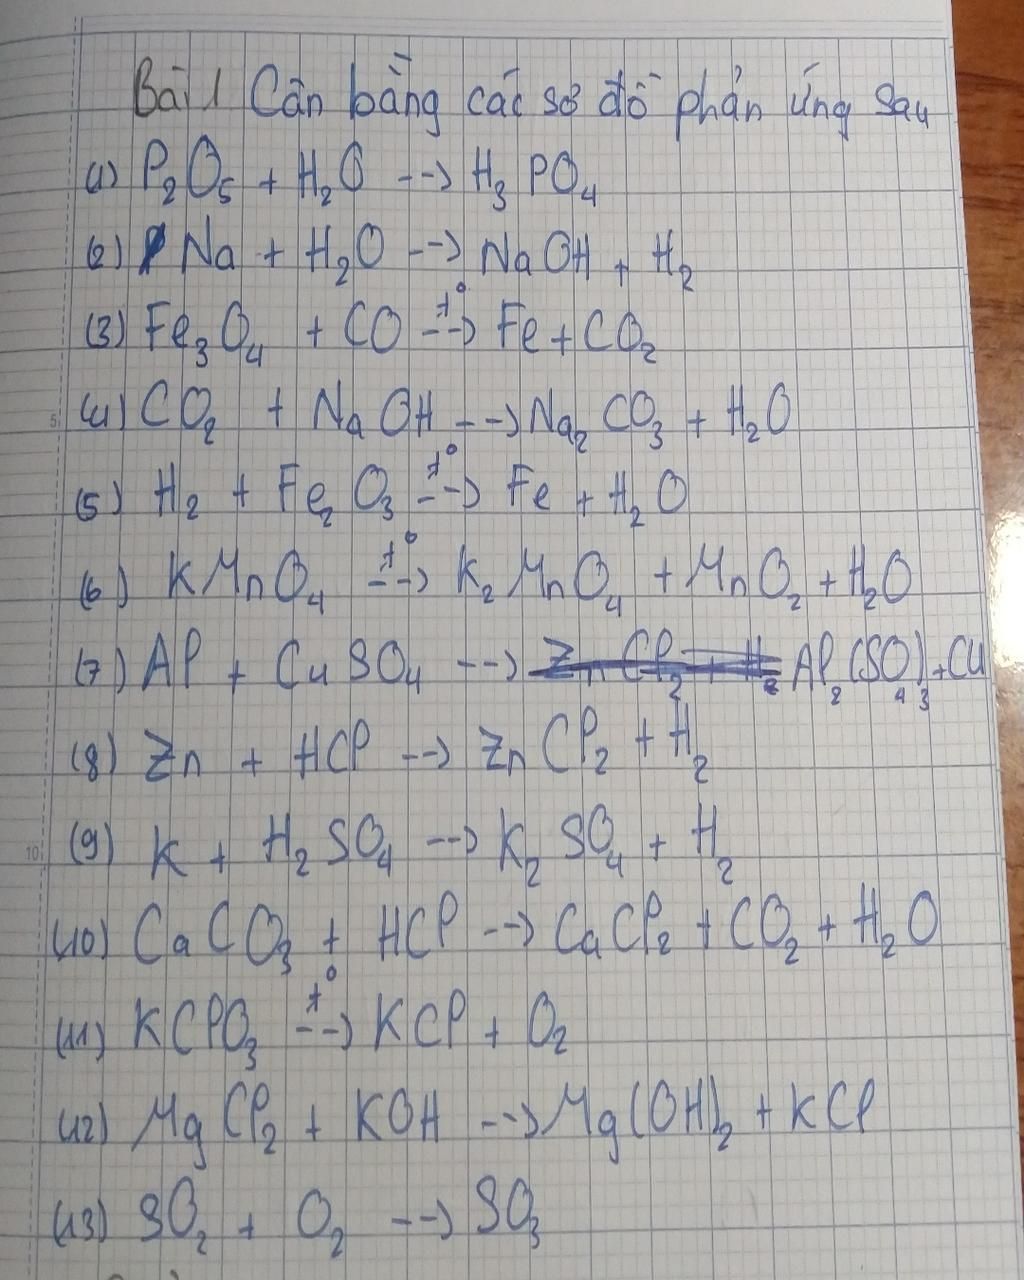 Bài 1 Cân bằng các sơ đồ phản ứng sau
(1) P₂O₅ + H₂O --> H₃PO₄
(2) Na + H₂O --> NaOH + H₂
(3) Fe₃O₄ + CO --t°--> Fe + CO₂
(4) CO₂ + NaOH --> Na₂CO₃ + H₂O
(5) H₂ + Fe₂O₃ --t°--> Fe + H₂O
(6) KMnO₄ --t°--> K₂MnO₄ + MnO₂ + H₂O
(7) Al + CuSO₄ --> Al₂(SO₄)₃ + Cu
(8) Zn + HCl --> ZnCl₂ + H₂
(9) K + H₂SO₄ --> K₂SO₄ + H₂
(10) CaCO₃ + HCl --> CaCl₂ + CO₂ + H₂O
(11) KClO₃ --t°--> KCl + O₂
(12) MgCl₂ + KOH --> Mg(OH)₂ + KCl
(13) SO₂ + O₂ --> SO₃